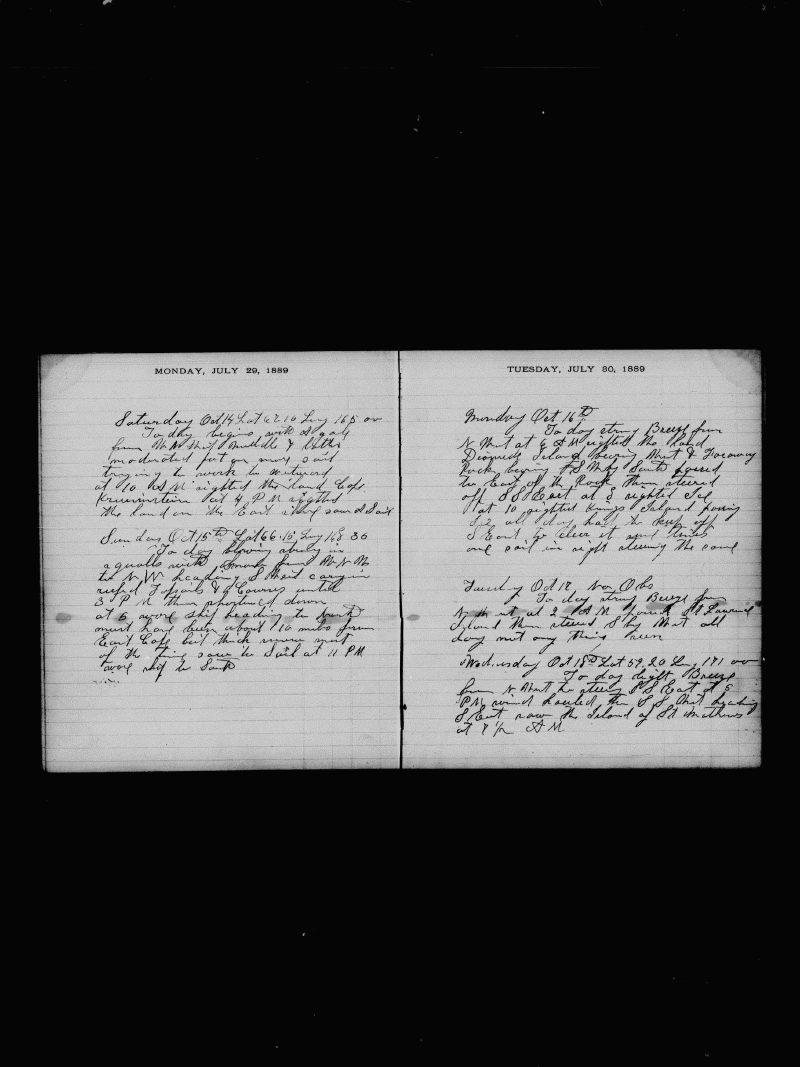 MONDAY, JULY 29, 1889
Saturday Oct 14 Lat 67.10 Long 165 00
To day begins with A gale
from Middle & Latter
moderated put on more sail
trying to work to
at 10 A M sighted the land Cape
at 4 P M sighted
the land on the East side saw a Sail
Sunday Oct 15th Lat 66.15 Long 168 30
To day blowing
squalls with from W N W
to N W heading S West
reefed Topsails & Courses until
3 P M then down
at 6 wore ship heading to
must have been about 10 miles from
East Cape but thick snow most
of the time saw to Sail at 11 PM
wore ship to South
TUESDAY, JULY 30, 1889
Monday Oct 16th
To day strong Breeze from
N West at 6 A M sighted the land
Diomede Island bearing West & Fairway
Rock bearing S W by South passed
to East of the Rock then steered
off S S East at 8 sighted Ice
at 10 sighted Kings Island passing
Ice all day had to keep off
S East to clear it
one sail in sight steering the same
Tuesday Oct 17, Nov Obs
To day strong Breeze from
N West at 2 A M passed St Lawrence
Island then steered S by West all
day met any thing seen
Wednesday Oct 18th Lat 59.20 Long 171 00
To day light Breeze
from N West to steering S S East at 5
P M wind hauled to S S West heading
S East saw the Island of St Mathews
at 7 1/2 A M